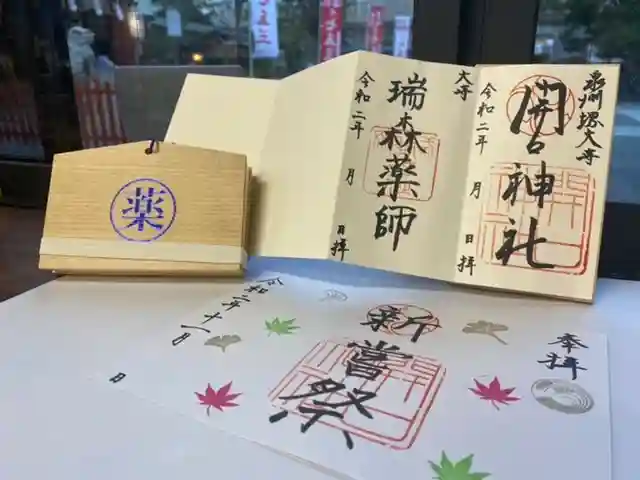 薬
泉州堺大寺
開口神社
令和二年 月 日拝
大寺
瑞森薬師
令和二年 月 日拝
奉拝
新嘗祭
令和二年十一月 日